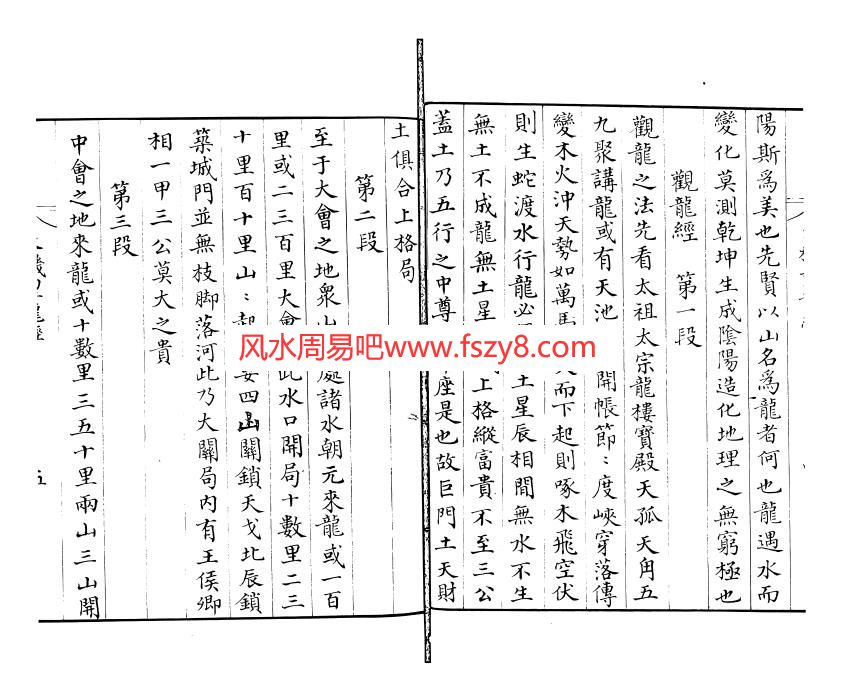 陽斯爲美也先賢以山名爲龍者何也龍遇水而
變化莫測乾坤生成陰陽造化地理之無窮極也
觀龍經 第一段
觀龍之法先看太祖太宗龍樓寶殿天孤天角五
九聚講龍或有天池 開帳節〻度峽穿落傳
變木火沖天勢如萬馬 而下起則啄木飛空伏
則生蛇渡水行龍必 土星辰相間無水不生
無土不成龍無土星 上格縱富貴不至三公
蓋土乃五行之中尊 座是也故巨門土天財
土俱合上格局
第二段
至于大會之地衆山 處諸水朝元來龍或一百
里或二三百里大會 此水口開局十數里二三
十里百十里山〻 要四 關鎖天戈北辰鎖
築城門並無枝脚落河此乃大關局內有王侯卿
相一甲三公莫大之貴
第三段
中會之地來龍或十數里三五十里兩山三山開
五
风水周易吧www.fszy8.com